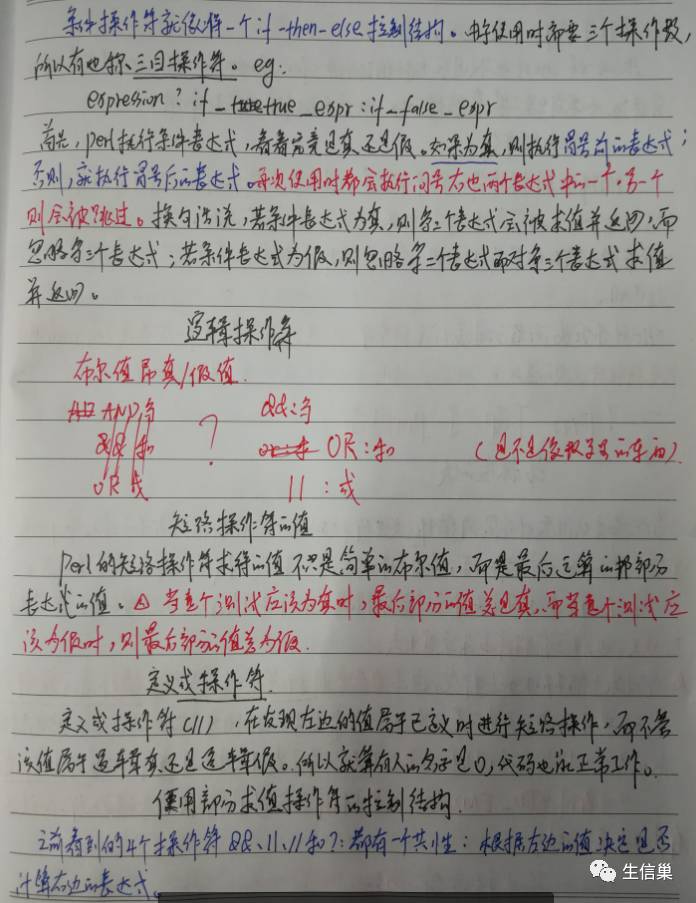 条件操作符就像将一个if-then-else控制结构。由于使用时需要三个操作数,
所以有也称三目操作符。eg:
expression ? if_true_expr : if_false_expr
首先,perl执行条件表达式,看看究竟是真还是假。如果为真,则执行冒号前的表达式;
否则,就执行冒号后的表达式。每次使用时都会执行问号右边两个表达式中的一个,另一个
则会被跳过。换句话说,若条件表达式为真,则第二个表达式会被求值并返回,而
忽略第三个表达式;若条件表达式为假,则忽略第二个表达式而对第三个表达式求值
并返回。
逻辑操作符
布尔值即真/假值.
AND 与 &&:与
&& 和 ? OR:和
OR 或 ||:或
短路操作符的值
perl的短路操作符求得的值不只是简单的布尔值,而是最后运算的那部分
表达式的值。△ 当整个测试应该为真时,最后部分的值总是真,而当整个测试应
该为假时,则最后部分的值总为假.
定义或操作符.
定义或操作符(//),在发现左边的值属于已定义时进行短路操作,而不管
该值属于逻辑真还是逻辑假。所以就算有人的名字是0,代码也能正常工作。
使用部分求值操作符的控制结构.
之前看到的4个操作符 &&、||、//和?:都有一个共性:根据左边的值决定是否
计算右边的表达式。
生信巢